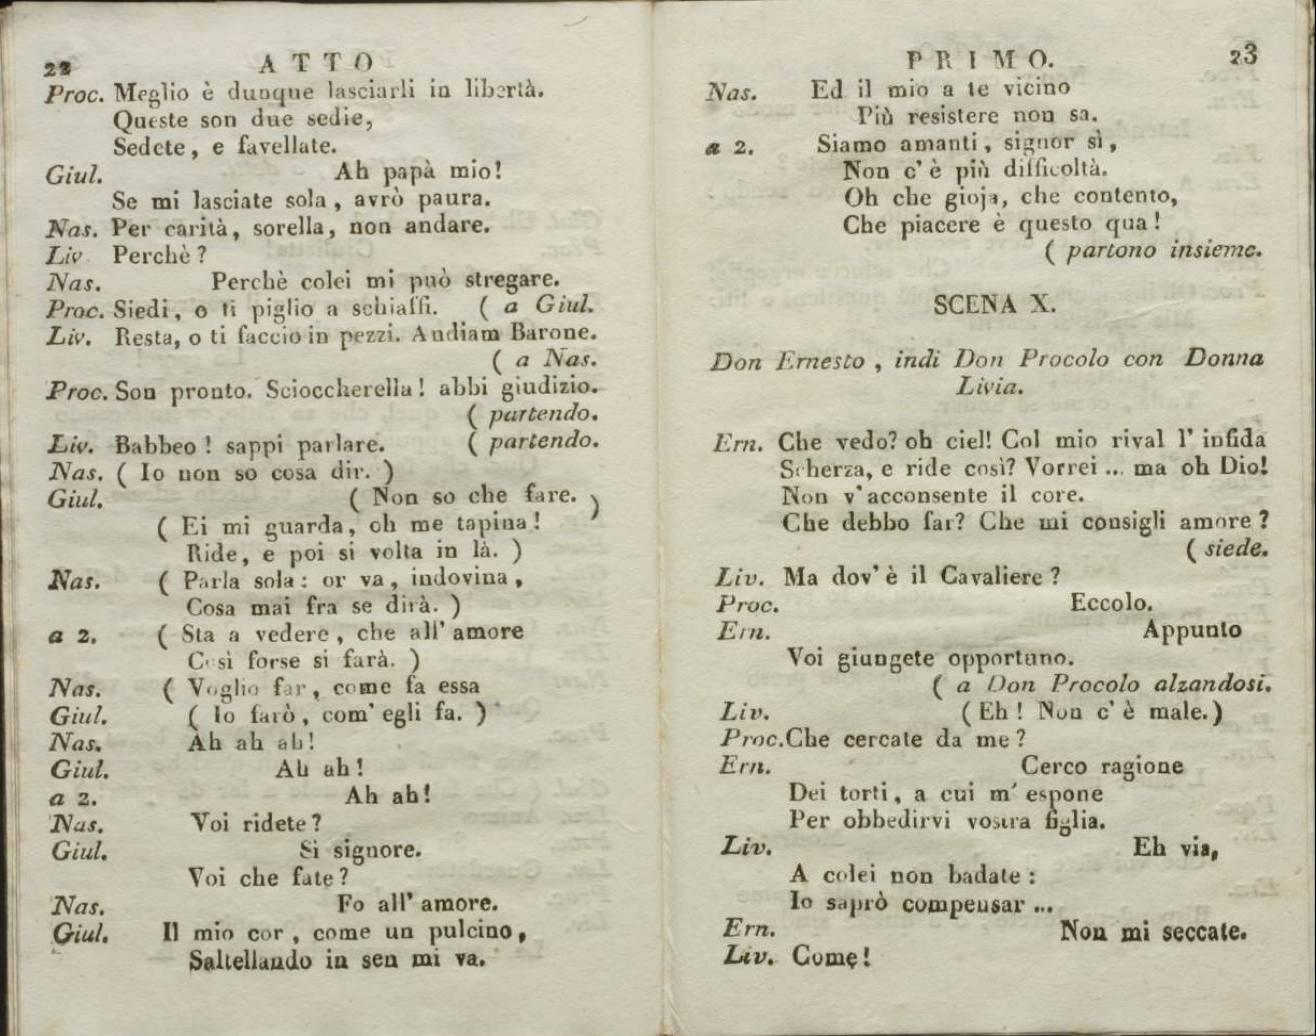 22 ATTO
Proc. Meglio è dunque lasciarli in libertà.
Queste son due sedie,
Sedete, e favellate.
Giul. Ah papà mio!
Se mi lasciate sola, avrò paura.
Nas. Per carità, sorella, non andare.
Liv. Perchè?
Nas. Perchè colei mi può stregare.
Proc. Siedi, o ti piglio a schiaffi. ( a Giul.
Liv. Resta, o ti faccio in pezzi. Andiam Barone.
( a Nas.
Proc. Son pronto. Scioccherella! abbi giudizio.
( partendo.
Liv. Babbeo! sappi parlare. ( partendo.
Nas. ( Io non so cosa dir. )
Giul. ( Non so che fare. )
( Ei mi guarda, oh me tapina!
Ride, e poi si volta in là. )
Nas. ( Parla sola: or va, indovina,
Cosa mai fra se dirà. )
a 2. ( Sta a vedere, che all' amore
Così forse si farà. )
Nas. ( Voglio far, come fa essa
Giul. ( Io farò, com' egli fa. )
Nas. Ah ah ah!
Giul. Ah ah!
a 2. Ah ah!
Nas. Voi ridete?
Giul. Si signore.
Voi che fate?
Nas. Fo all' amore.
Giul. Il mio cor, come un pulcino,
Saltellando in sen mi va.
PRIMO. 23
Nas. Ed il mio a te vicino
Più resistere non sa.
a 2. Siamo amanti, signor sì,
Non c' è più difficoltà.
Oh che gioja, che contento,
Che piacere è questo qua!
( partono insieme.
SCENA X.
Don Ernesto, indi Don Procolo con Donna
Livia.
Ern. Che vedo? oh ciel! Col mio rival l' infida
Scherza, e ride così? Vorrei ... ma oh Dio!
Non v' acconsente il core.
Che debbo far? Che mi consigli amore?
( siede.
Liv. Ma dov' è il Cavaliere?
Proc. Eccolo.
Ern. Appunto
Voi giungete opportuno.
( a Don Procolo alzandosi.
Liv. ( Eh! Non c' è male.)
Proc. Che cercate da me?
Ern. Cerco ragione
Dei torti, a cui m' espone
Per obbedirvi vostra figlia.
Liv. Eh via,
A colei non badate:
Io saprò compensar ...
Ern. Non mi seccate.
Liv. Come!